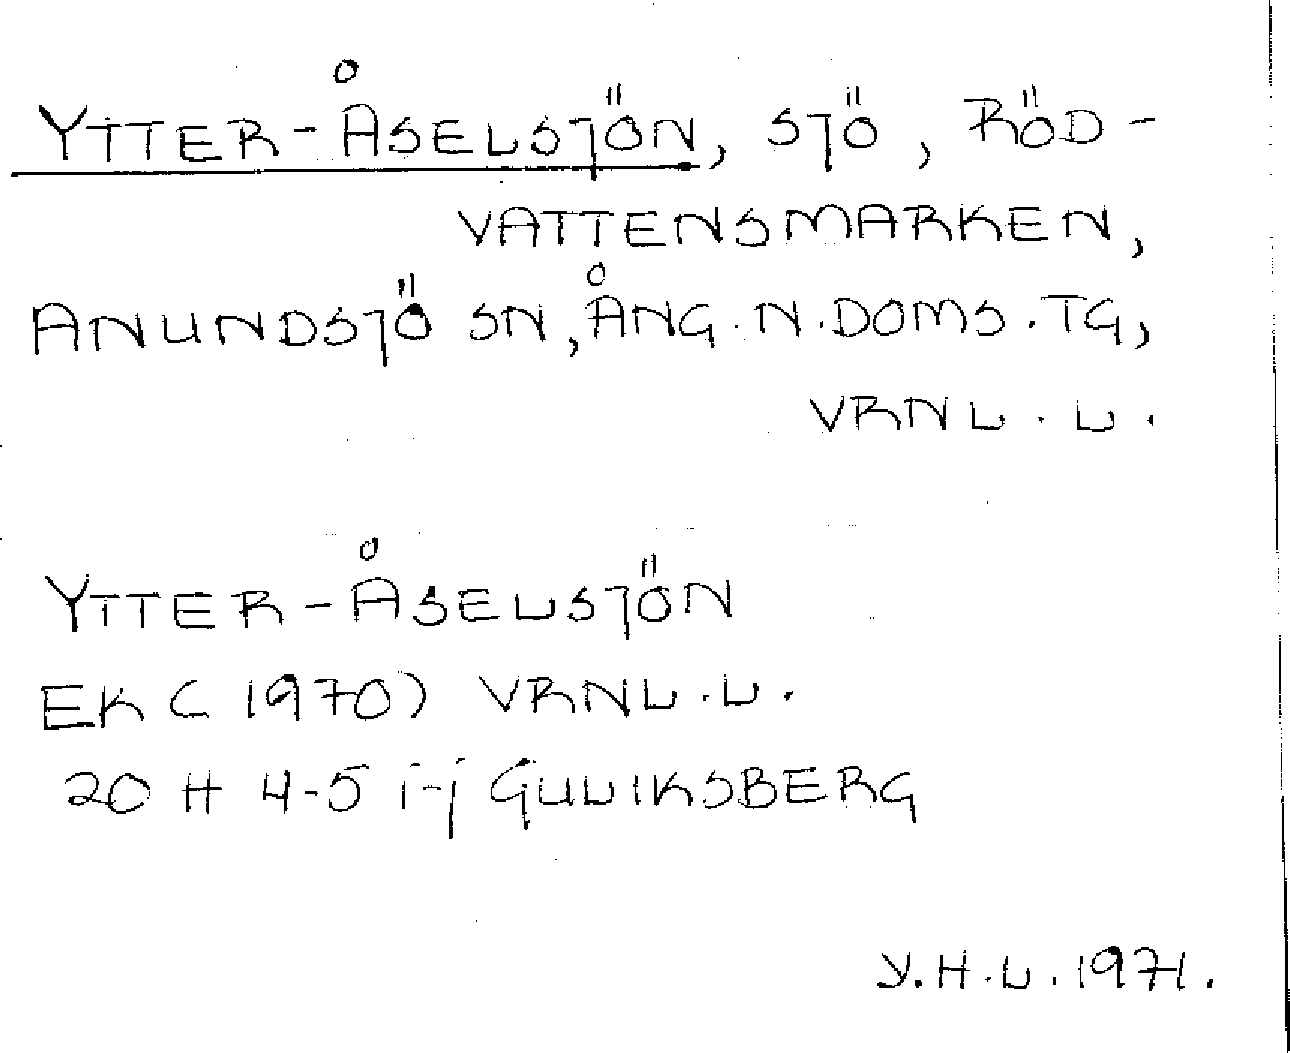 YTTER-ÅSELSJÖN, SJÖ, RÖD-
VATTENSMARKEN,
ANUNDSJÖ SN, ÅNG. N. DOMS. TG,
VRNL. L.
YTTER-ÅSELSJÖN
EK (1970) VRNL. L.
20 H 4-5 i-j GULLIKSBERG
Y. H. L. 1971.